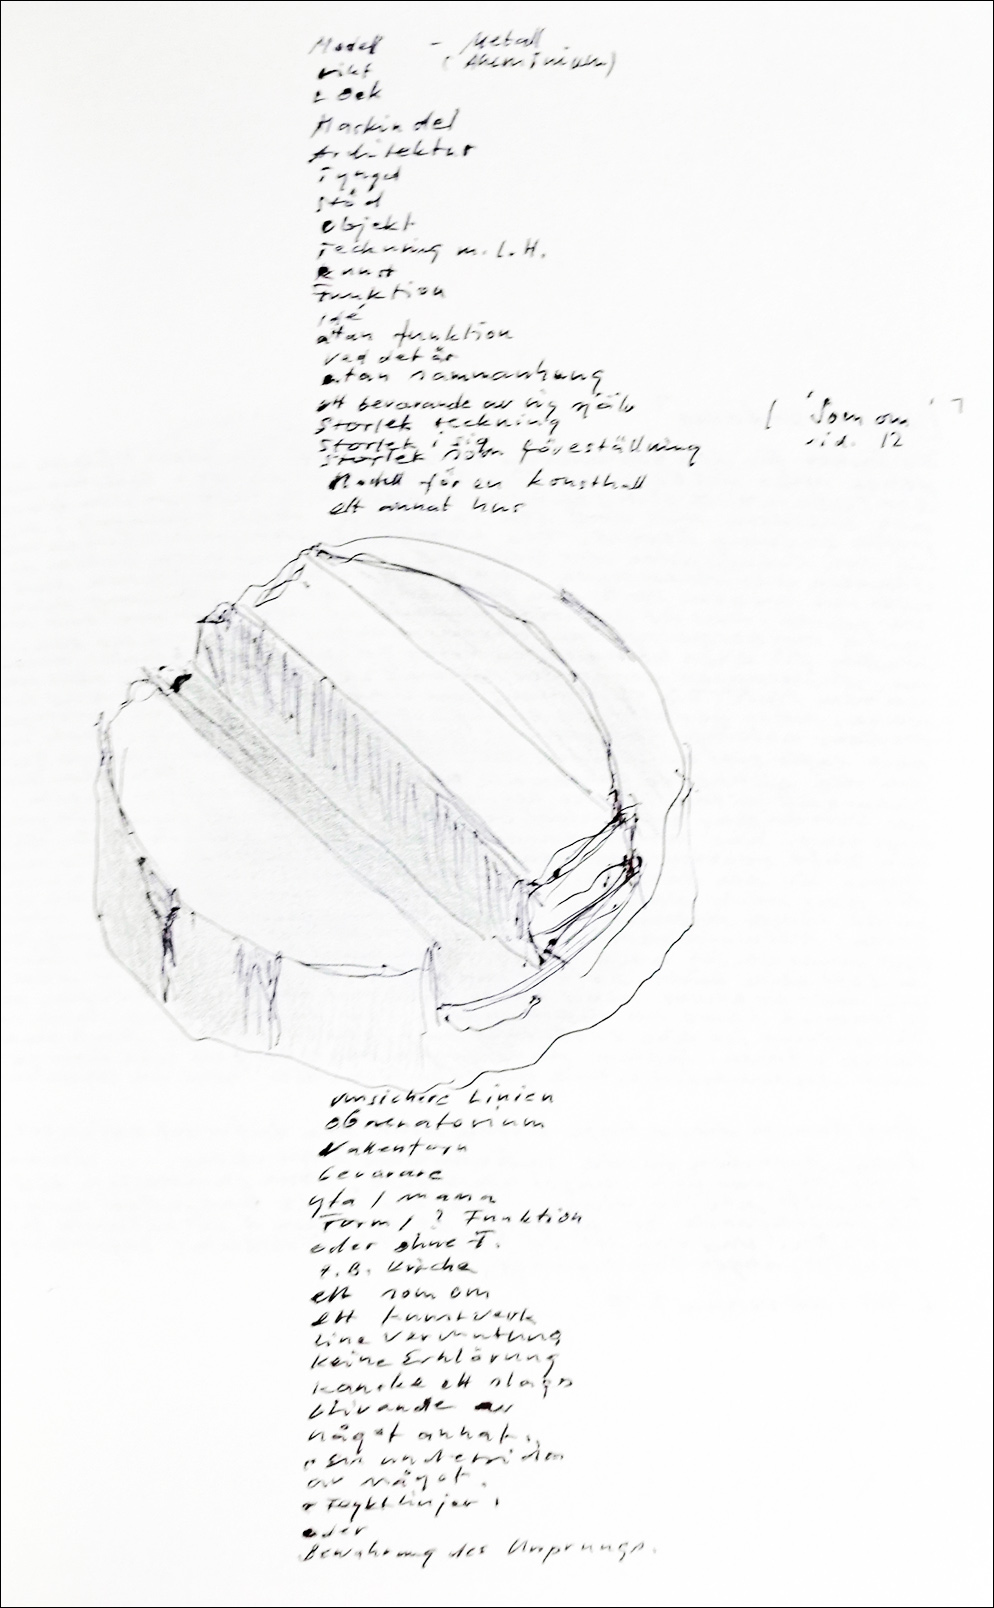 Modell - Metall
vikt (Aluminium)
Lock
Maskindel
Arkitektur
Tyngd
stöd
objekt
Teckning m. L. H.
kunst
Funktion
idé
utan funktion
vad det är
utan sammanhang
ett bevarande av sig själv
Storlek teckning
Storlek i sig
Storlek som föreställning
( 'Som om'
sid. 12
Modell för en konsthall
ett annat hus
unsichere Linien
Observatorium
Vakentorn
bevarare
yta / mana
Form / ? Funktion
oder ohne F.
z. B. Kirche
ett som om
ett kunstverk
eine Vermutung
keine Erklärung
kanske ett slags
blivande av
något annat.
en undersida
av något.
Flyktlinjer
oder
Bewahrung des Ursprungs.